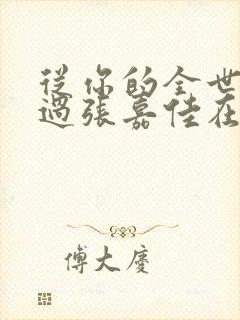 從你的全世
過張嘉佳在
傅大慶